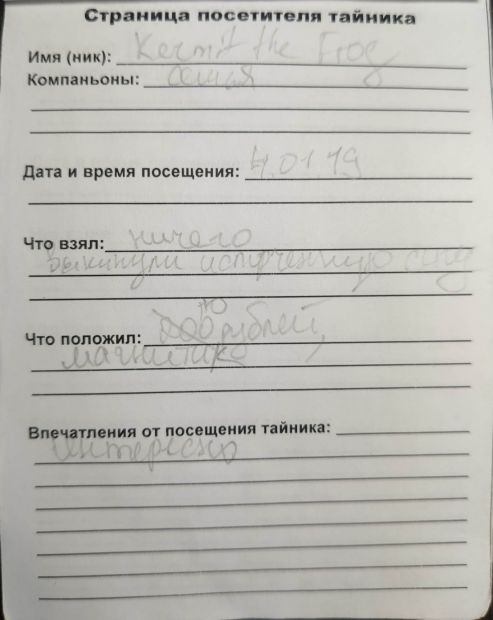 Страница посетителя тайника
Имя (ник): Kermit the Frog
Компаньоны: семья
Дата и время посещения: 4.01 19
Что взял: ничего
выкинули испорченную
Что положил: 10 рублей,
магнитик
Впечатления от посещения тайника:
Интересно